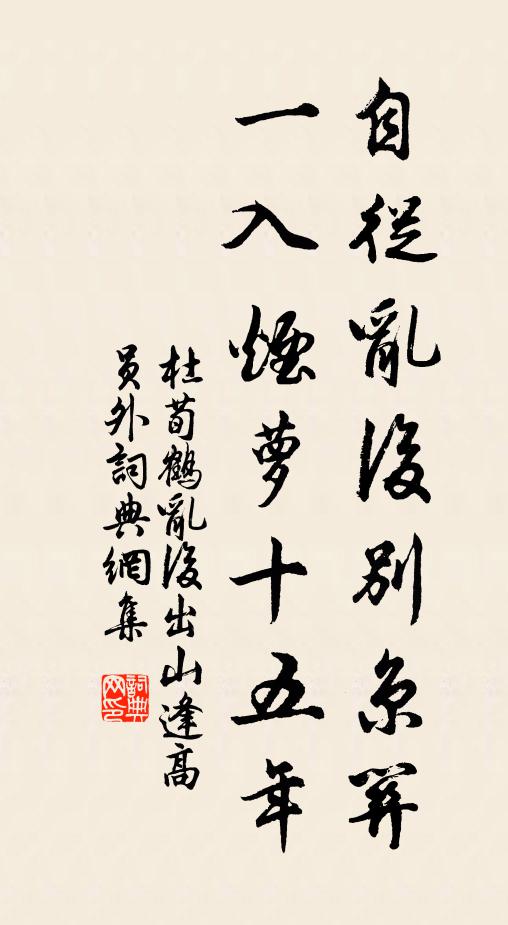 自從亂後別京關
一入煙蘿十五年
杜荀鶴亂後出山逢高
員外詞典網集
詞典网印